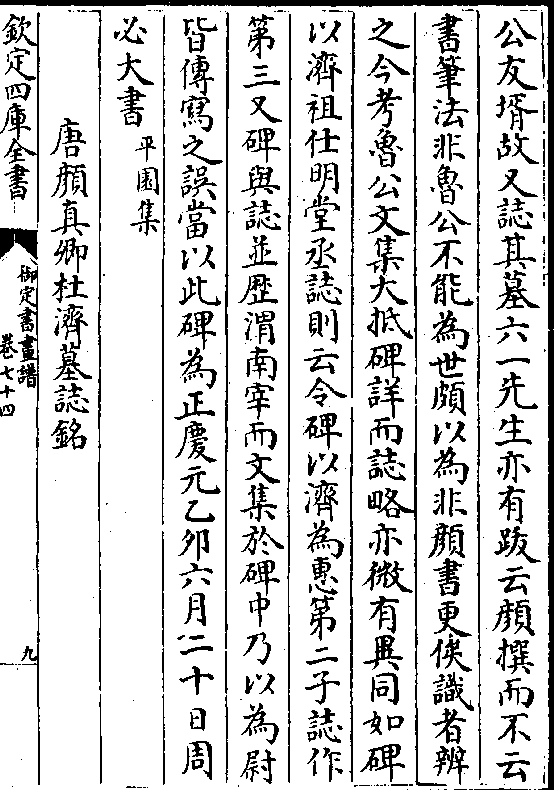 公友壻故又誌其墓六一先生亦有跋云顔撰而不云
書筆法非魯公不能為世頗以為非顔書更俟識者辨
之今考魯公文集大抵碑詳而誌略亦微有異同如碑
以濟祖仕明堂丞誌則云令碑以濟為惠第二子誌作
第三又碑與誌並歴渭南宰而文集於碑中乃以為尉
皆傳寫之誤當以此碑為正慶元乙夘六月二十日周
必大書 平園集
唐顔真卿杜濟墓誌銘
欽定四庫全書
御定書畫譜
卷七十四
九